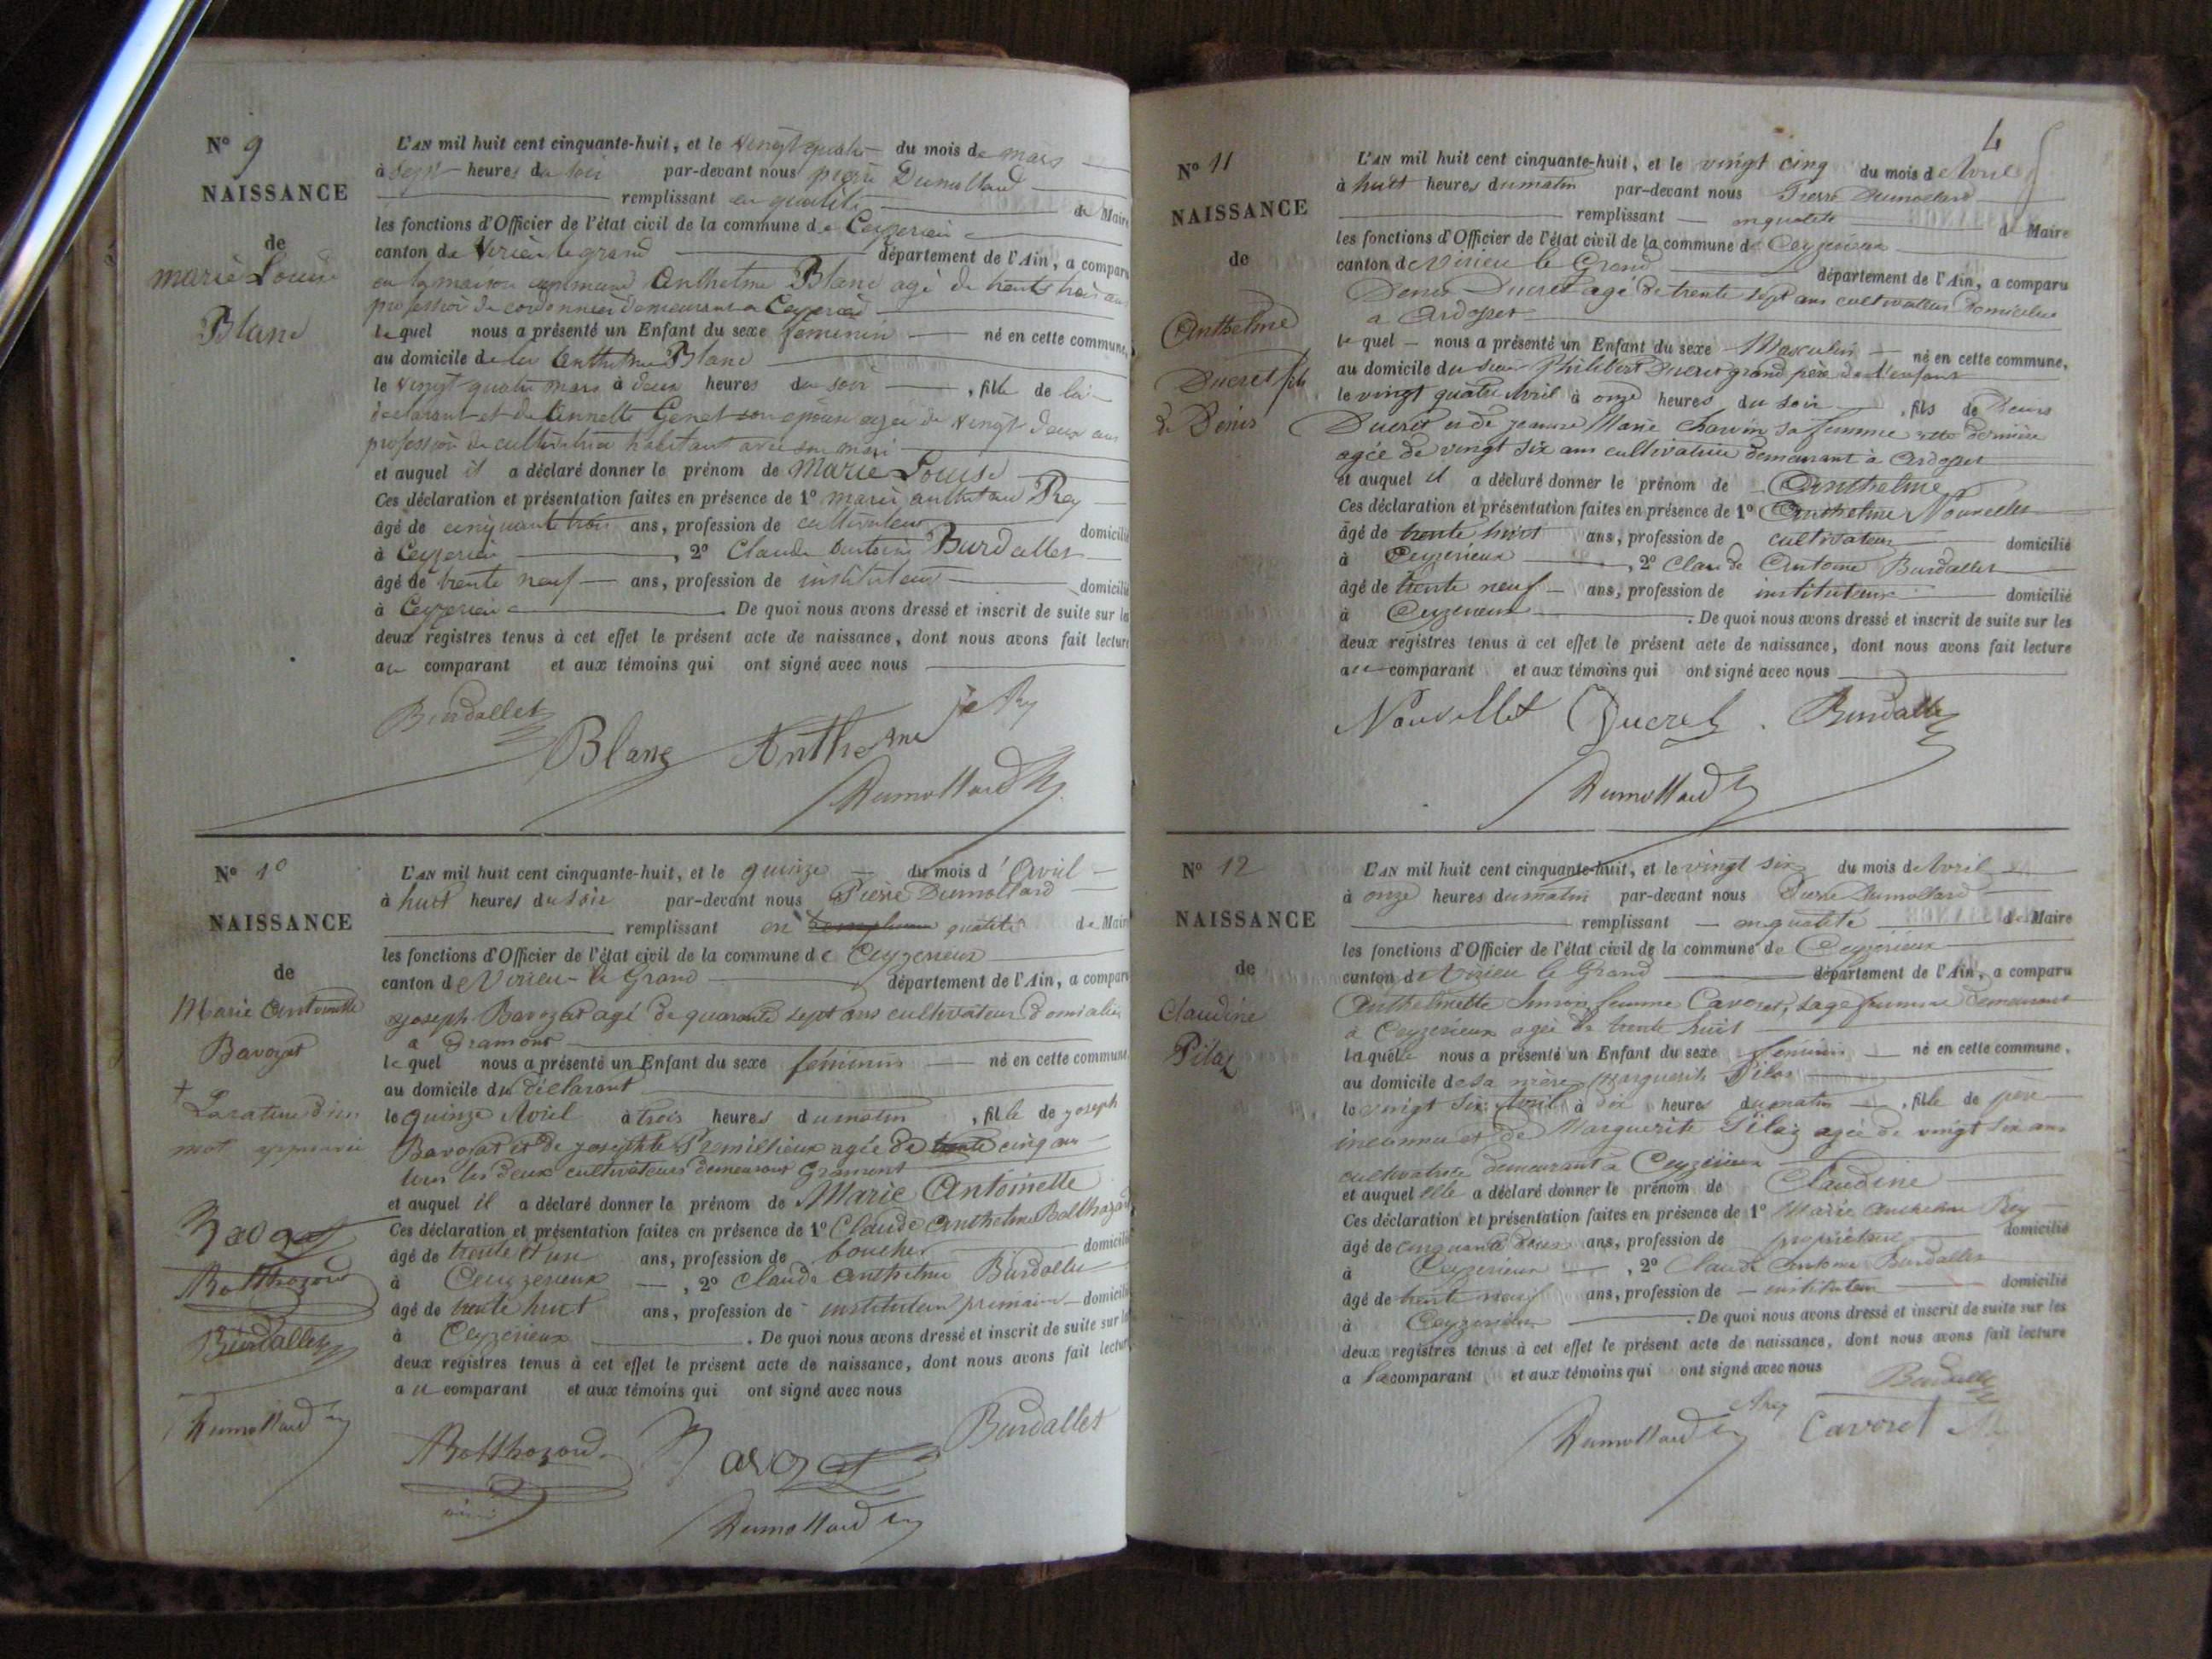 N° 9
NAISSANCE
de
marie Louise
Blanc
L'AN mil huit cent cinquante-huit, et le vingt quatre du mois de mars
à sept heures du soir par-devant nous pierre Dumollard
remplissant en qualité de Maire
les fonctions d'Officier de l'état civil de la commune de Ceyzerieu
canton de Virieu le grand département de l'Ain, a comparu
en la maison commune Anthelme Blanc agé de trente trois ans
profession de cordonnier demeurant a Ceyzerieu
lequel nous a présenté un Enfant du sexe feminin né en cette commune,
au domicile de lui Anthelme Blanc
le vingt quatre mars à deux heures du soir , fille de lui
déclarant et de Annette Genet son epouse agée de vingt deux ans
profession de cultivatrice habitant avec son mari
et auquel il a déclaré donner le prénom de Marie Louise
Ces déclaration et présentation faites en présence de 1° marie anthelme Rey
âgé de cinquante trois ans, profession de cultivateur domicilié
à Ceyzerieu , 2° Claude Antoine Burdallet
âgé de trente neuf ans, profession de instituteur domicilié
à Ceyzerieu . De quoi nous avons dressé et inscrit de suite sur les
deux registres tenus à cet effet le présent acte de naissance, dont nous avons fait lecture
au comparant et aux témoins qui ont signé avec nous
Burdallet
Blanc Anthelme Rey
Dumollard
N° 10
NAISSANCE
de
Marie Antoinette
Bavozat
L'AN mil huit cent cinquante-huit, et le quinze du mois d'Avril
à huit heures du soir par-devant nous Pierre Dumollard
remplissant en qualité de Maire
les fonctions d'Officier de l'état civil de la commune de Ceyzerieux
canton de Virieu-le Grand département de l'Ain, a comparu
joseph Bavozat agé de quarante sept ans cultivateur domicilié
a
lequel nous a présenté un Enfant du sexe féminin né en cette commune,
au domicile du déclarant
le quinze Avril à trois heures du matin , fille de joseph
Bavozat et de josephte Premillieux agée de trente cinq ans
tous les deux cultivateurs demeurant
et auquel il a déclaré donner le prénom de Marie Antoinette
Ces déclaration et présentation faites en présence de 1° Claude anthelme Balthazard
âgé de trente et un ans, profession de boucher domicilié
à Ceyzerieux , 2° Claude anthelme Burdallet
âgé de trente huit ans, profession de instituteur primaire domicilié
à Ceyzerieux . De quoi nous avons dressé et inscrit de suite sur les
deux registres tenus à cet effet le présent acte de naissance, dont nous avons fait lecture
au comparant et aux témoins qui ont signé avec nous
+ La rature d'un
mot approuvée
Bavozat
Balthazard
Burdallet
Dumollard
Balthazard Bavozat Burdallet
Dumollard
4
N° 11
NAISSANCE
de
Anthelme
Ducret fils
de Denis
L'AN mil huit cent cinquante-huit, et le vingt cinq du mois d Avril
à huit heures du matin par-devant nous Pierre Dumollard
remplissant en qualité de Maire
les fonctions d'Officier de l'état civil de la commune de Ceyzerieux
canton de Virieu le Grand département de l'Ain, a comparu
Denis Ducret agé de trente sept ans cultivateur domicilié
a Ardosset
lequel nous a présenté un Enfant du sexe Masculin né en cette commune,
au domicile du sieur Philibert Ducret grand père de l'enfant
le vingt quatre Avril à onze heures du soir , fils de Denis
Ducret et de jeanne Marie Charvin sa femme cette dernière
agée de vingt six ans cultivatrice demeurant à Ardosset
et auquel il a déclaré donner le prénom de Anthelme
Ces déclaration et présentation faites en présence de 1° Anthelme Nouvellet
âgé de trente huit ans, profession de cultivateur domicilié
à Ceyzerieux , 2° Claude Antoine Burdallet
âgé de trente neuf ans, profession de instituteur domicilié
à Ceyzerieux . De quoi nous avons dressé et inscrit de suite sur les
deux registres tenus à cet effet le présent acte de naissance, dont nous avons fait lecture
au comparant et aux témoins qui ont signé avec nous
Nouvellet Ducret Burdallet
Dumollard
N° 12
NAISSANCE
de
Claudine
Pilaz
L'AN mil huit cent cinquante-huit, et le vingt six du mois d Avril
à onze heures du matin par-devant nous Pierre Dumollard
remplissant en qualité de Maire
les fonctions d'Officier de l'état civil de la commune de Ceyzerieux
canton de Virieu le Grand département de l'Ain, a comparu
Anthelmette femme Cavoret, sage femme demeurant
à Ceyzerieux agée de trente huit
laquelle nous a présenté un Enfant du sexe féminin né en cette commune,
au domicile de sa mère Marguerite Pilaz
le vingt six Avril à dix heures du matin , fille de père
inconnu et de Marguerite Pilaz agée de vingt six ans
cultivatrice demeurant à Ceyzerieux
et auquel elle a déclaré donner le prénom de Claudine
Ces déclaration et présentation faites en présence de 1° Marie Anthelme Rey
âgé de cinquante trois ans, profession de propriétaire domicilié
à Ceyzerieux , 2° Claude Antoine Burdallet
âgé de trente neuf ans, profession de instituteur domicilié
à Ceyzerieux . De quoi nous avons dressé et inscrit de suite sur les
deux registres tenus à cet effet le présent acte de naissance, dont nous avons fait lecture
a la comparant et aux témoins qui ont signé avec nous
Burdallet
Dumollard Rey Cavoret